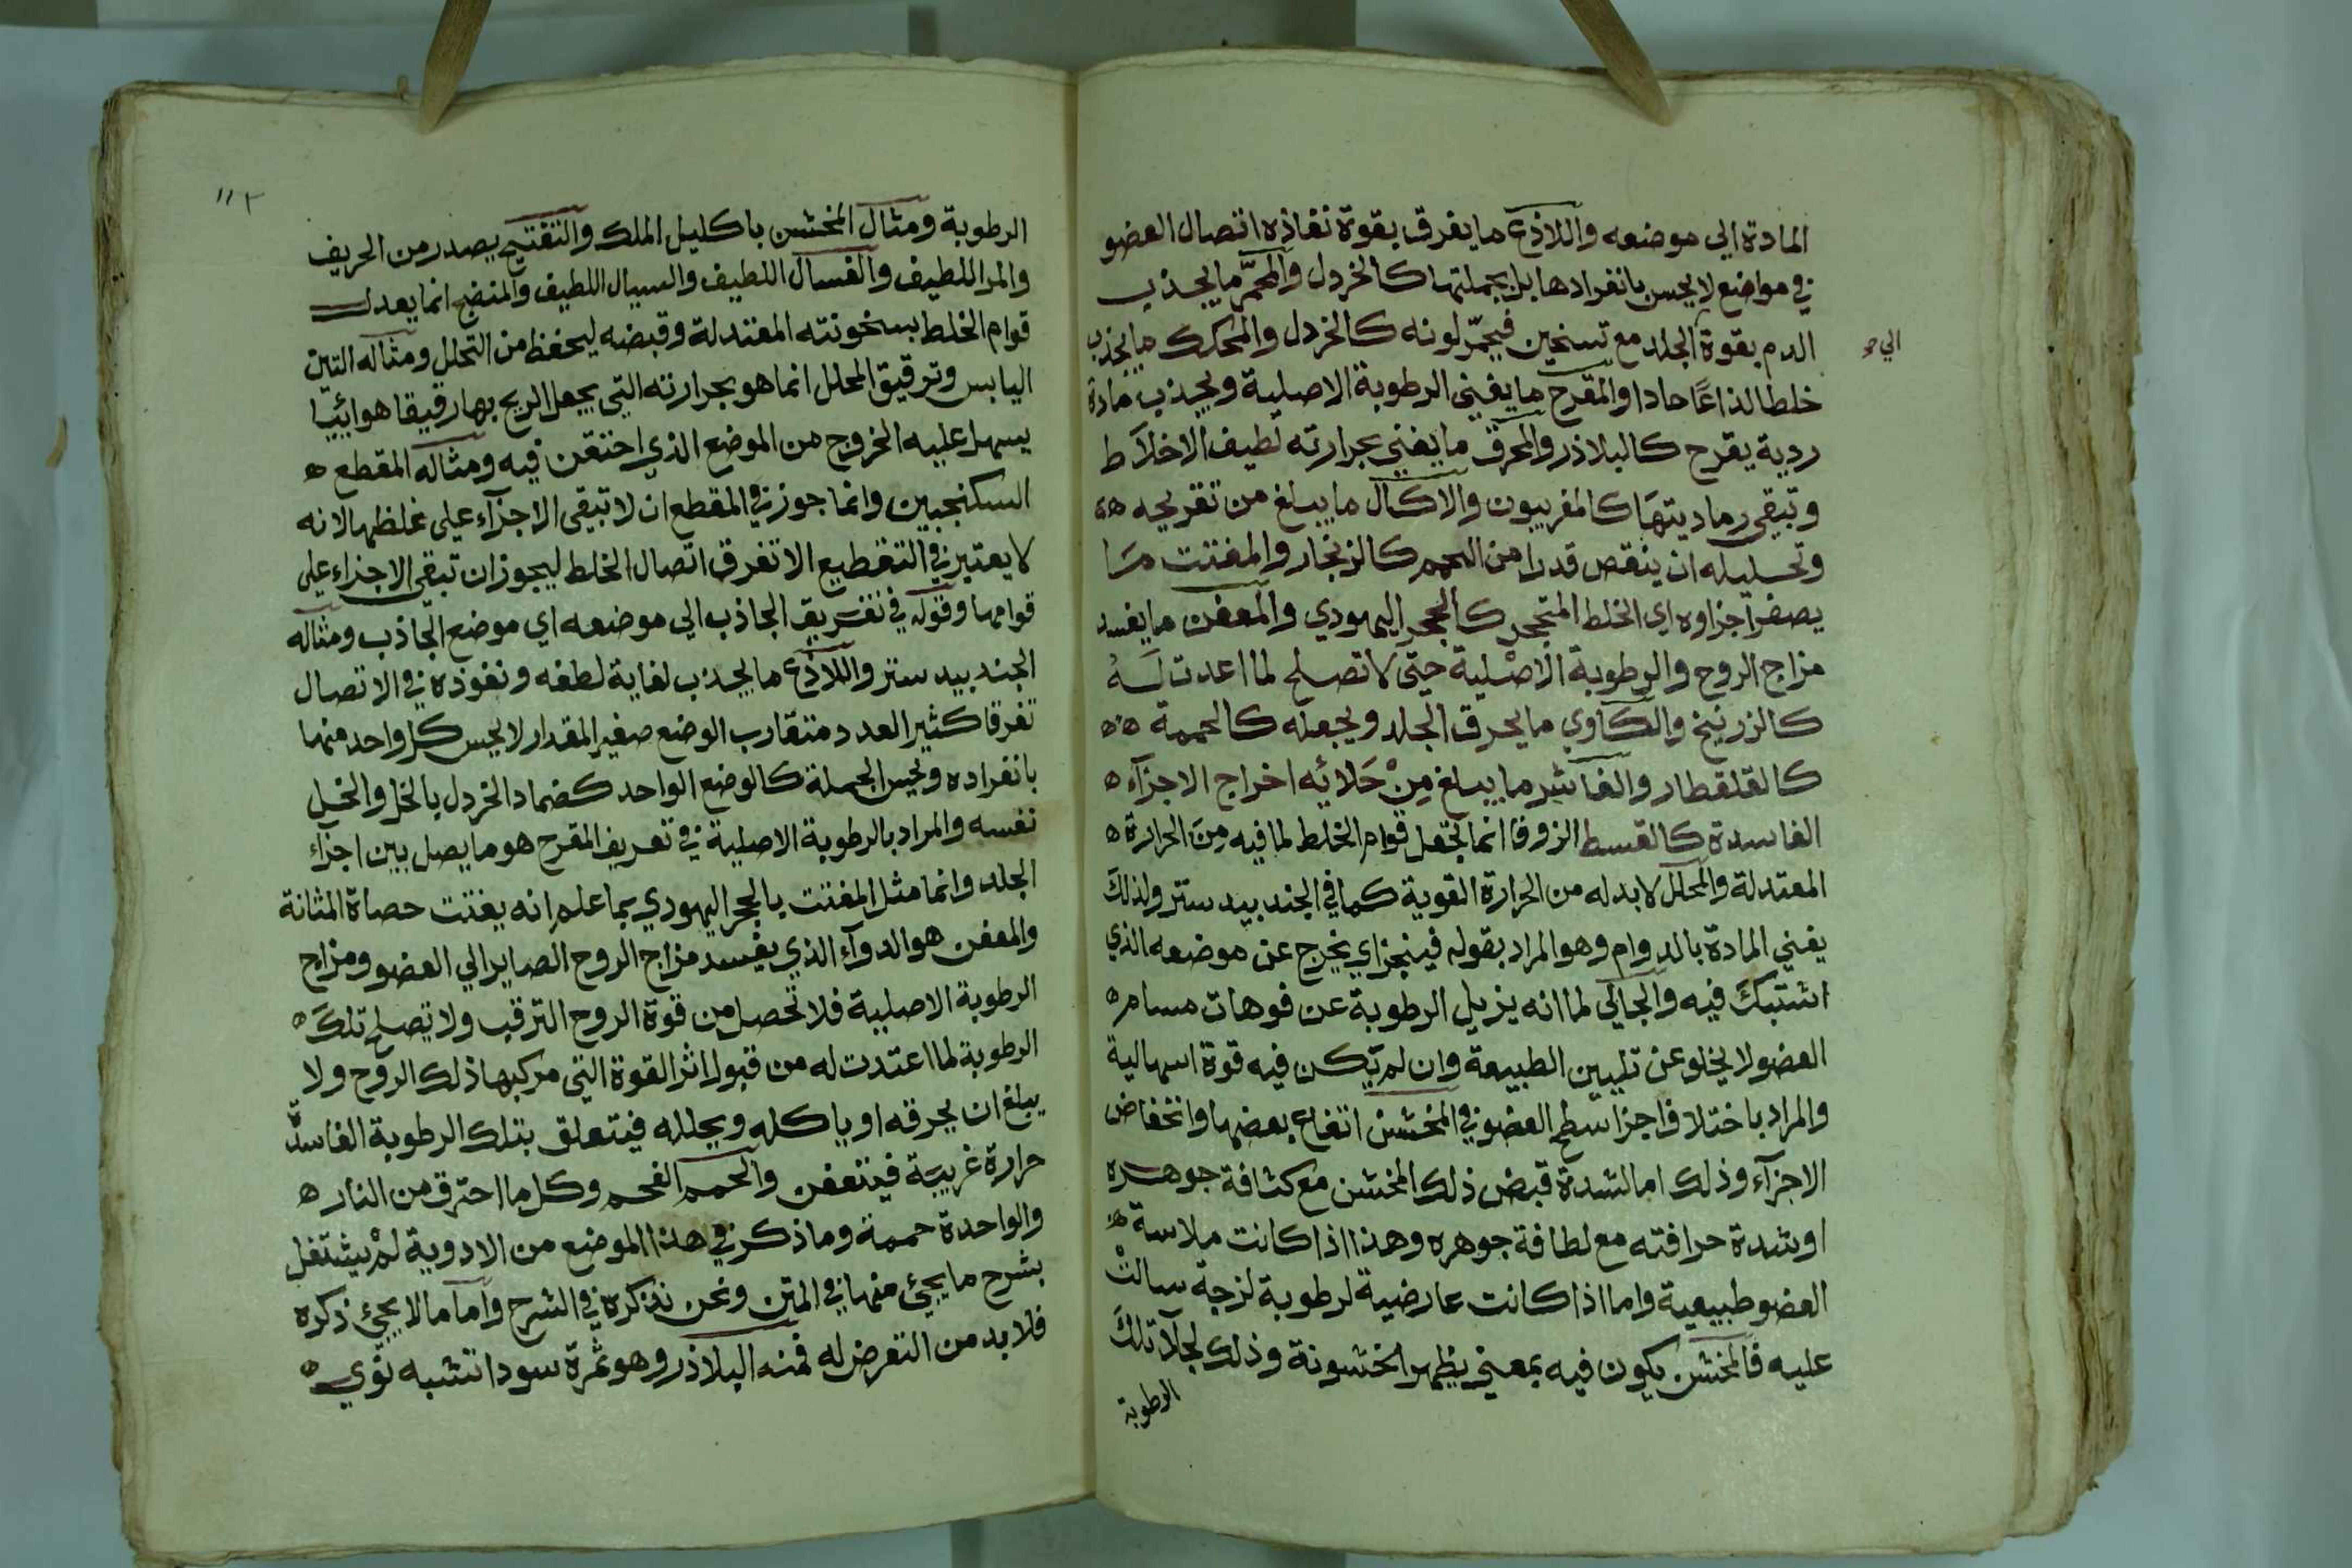 المادة الي موضعه واللاذع ما يفرق بقوة نفاذه اتصال العضو
في مواضع لا يحس بانفرادها بل بجملتها كالخردل والمحمّر ما يجذب
الدم بقوة الجلد مع تسخين فيحمّر لونه كالخردل والمحكك ما يجذب
الي
خلطا لذاعًا حادا والمقرح ما يفني الرطوبة الاصلية ويجذب مادة
ردية يقرح كالبلاذر والمحرق ما يفني بحرارته لطيف الاخلاط
وتبقي رماديتها كالفربيون والاكال ما يبلغ من تقريحه
وتحليله ان ينقص قدرا من اللحم كالزنجار والمفتت ما
يصغر اجزاوه اي الخلط المتحجر كالحجر اليهودي والمعفن ما يفسد
مزاج الروح والرطوبة الاصْلية حتي لا تصلح لما اعدت لَهُ
كالزرنيخ والكاوي ما يحرق الجلد ويجعله كالحممة
كالقلقطار والقاشر ما يبلغ مِنْ جَلائه اخراج الاجزآء
الفاسدة كالقسط الزوفا انما يجعل قوام الخلط لما فيه مِنَ الحرارة
المعتدلة والمحلل لا بد له من الحرارة القوية كما في الجندبيدستر ولذلكَ
يفني المادة بالدوام وهو المراد بقوله فينجزاي يخرج عن موضعه الذي
اشتبكَ فيه والجالي لما انه يزيل الرطوبة عن فوهات مسام
العضو لا يخلو عن تليين الطبيعة وان لم يكن فيه قوة اسهالية
والمراد باختلاف اجزا سطح العضو في المخشن ارتفاع بعضها وانخفاض
الاجزآء وذلك اما لشدة قبض ذلك المخشن مع كثافة جوهره
او شدة حرافته مع لطافة جوهره وهذا اذا كانت ملاسة
العضو طبيعية واما اذا كانت عارضية لرطوبة لزجة سالتْ
عليه فالمخشن يكون فيه بمعني يظهر الخشونة وذلك لجلآ تلكَ
الرطوبة
١١٢
الرطوبة ومثال المخشن باكليل الملك والتفتيح يصدر من الحريف
والمر اللطيف والغسال اللطيف والسيال اللطيف والمنضج انما يعدل
قوام الخلط بسخونته المعتدلة وقبضه ليحفظ من التحلل ومثاله التين
اليابس وترقيق المحلل انما هو بحرارته التي يجعل الريح بها رقيقا هوائيًا
يسهل عليه الخروج من الموضع الذي احتقن فيه ومثاله المقطع
السكنجبين وانما جوز في المقطع ان لا تبقي الاجزآء علي غلظها لانه
لا يعتبر في التقطيع الا تفرق اتصال الخلط ليجوز ان تبقي الاجزاء علي
قوامها وقوله في تفريق الجاذب الي موضعه اي موضع الجاذب ومثاله
الجندبيدستر واللاذع ما يجذب لغاية لطفه ونفوذه في الاتصال
تفرقا كثير العدد متقارب الوضع صغير المقدار لا يحس كل واحد منها
بانفراده ويحس الجملة كالوضع الواحد كضماد الخردل بالخل والخل
نفسه والمراد بالرطوبة الاصلية في تعريف المقرح هو ما يصل بين اجزاء
الجلد وانما مثل المفتت بالحجر اليهودي بما علم انه يفتت حصاة المثانة
والمعفن هو الدوآء الذي يفسد مزاج الروح الصاير الي العضو ومزاج
الرطوبة الاصلية فلا تحصل من قوة الروح الترقيب ولا تصلح تلكَ
الرطوبة لما اعتدت له من قبول اثر القوة التي مركبها ذلك الروح ولا
يبلغ ان يحرقه او ياكله ويحلله فيتعلق بتلك الرطوبة الفاسدة
حرارة غريبة فيتعفن والحمم الفحم وكل ما احترق من النار
والواحدة حممة وما ذكر في هذا الموضع من الادوية لمْ يشتغل
بشرح ما يجئ منها في المتن ونحن نذكره في الشرح وأما ما لا يجئ ذكره
فلا بد من التعرض له فمنه البلاذر وهو ثمرة سودا تشبه نوي